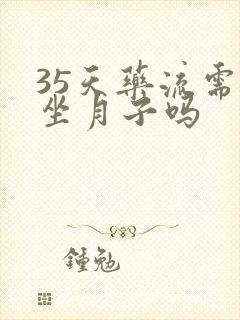 35天药流需
坐月子吗
鍾勉